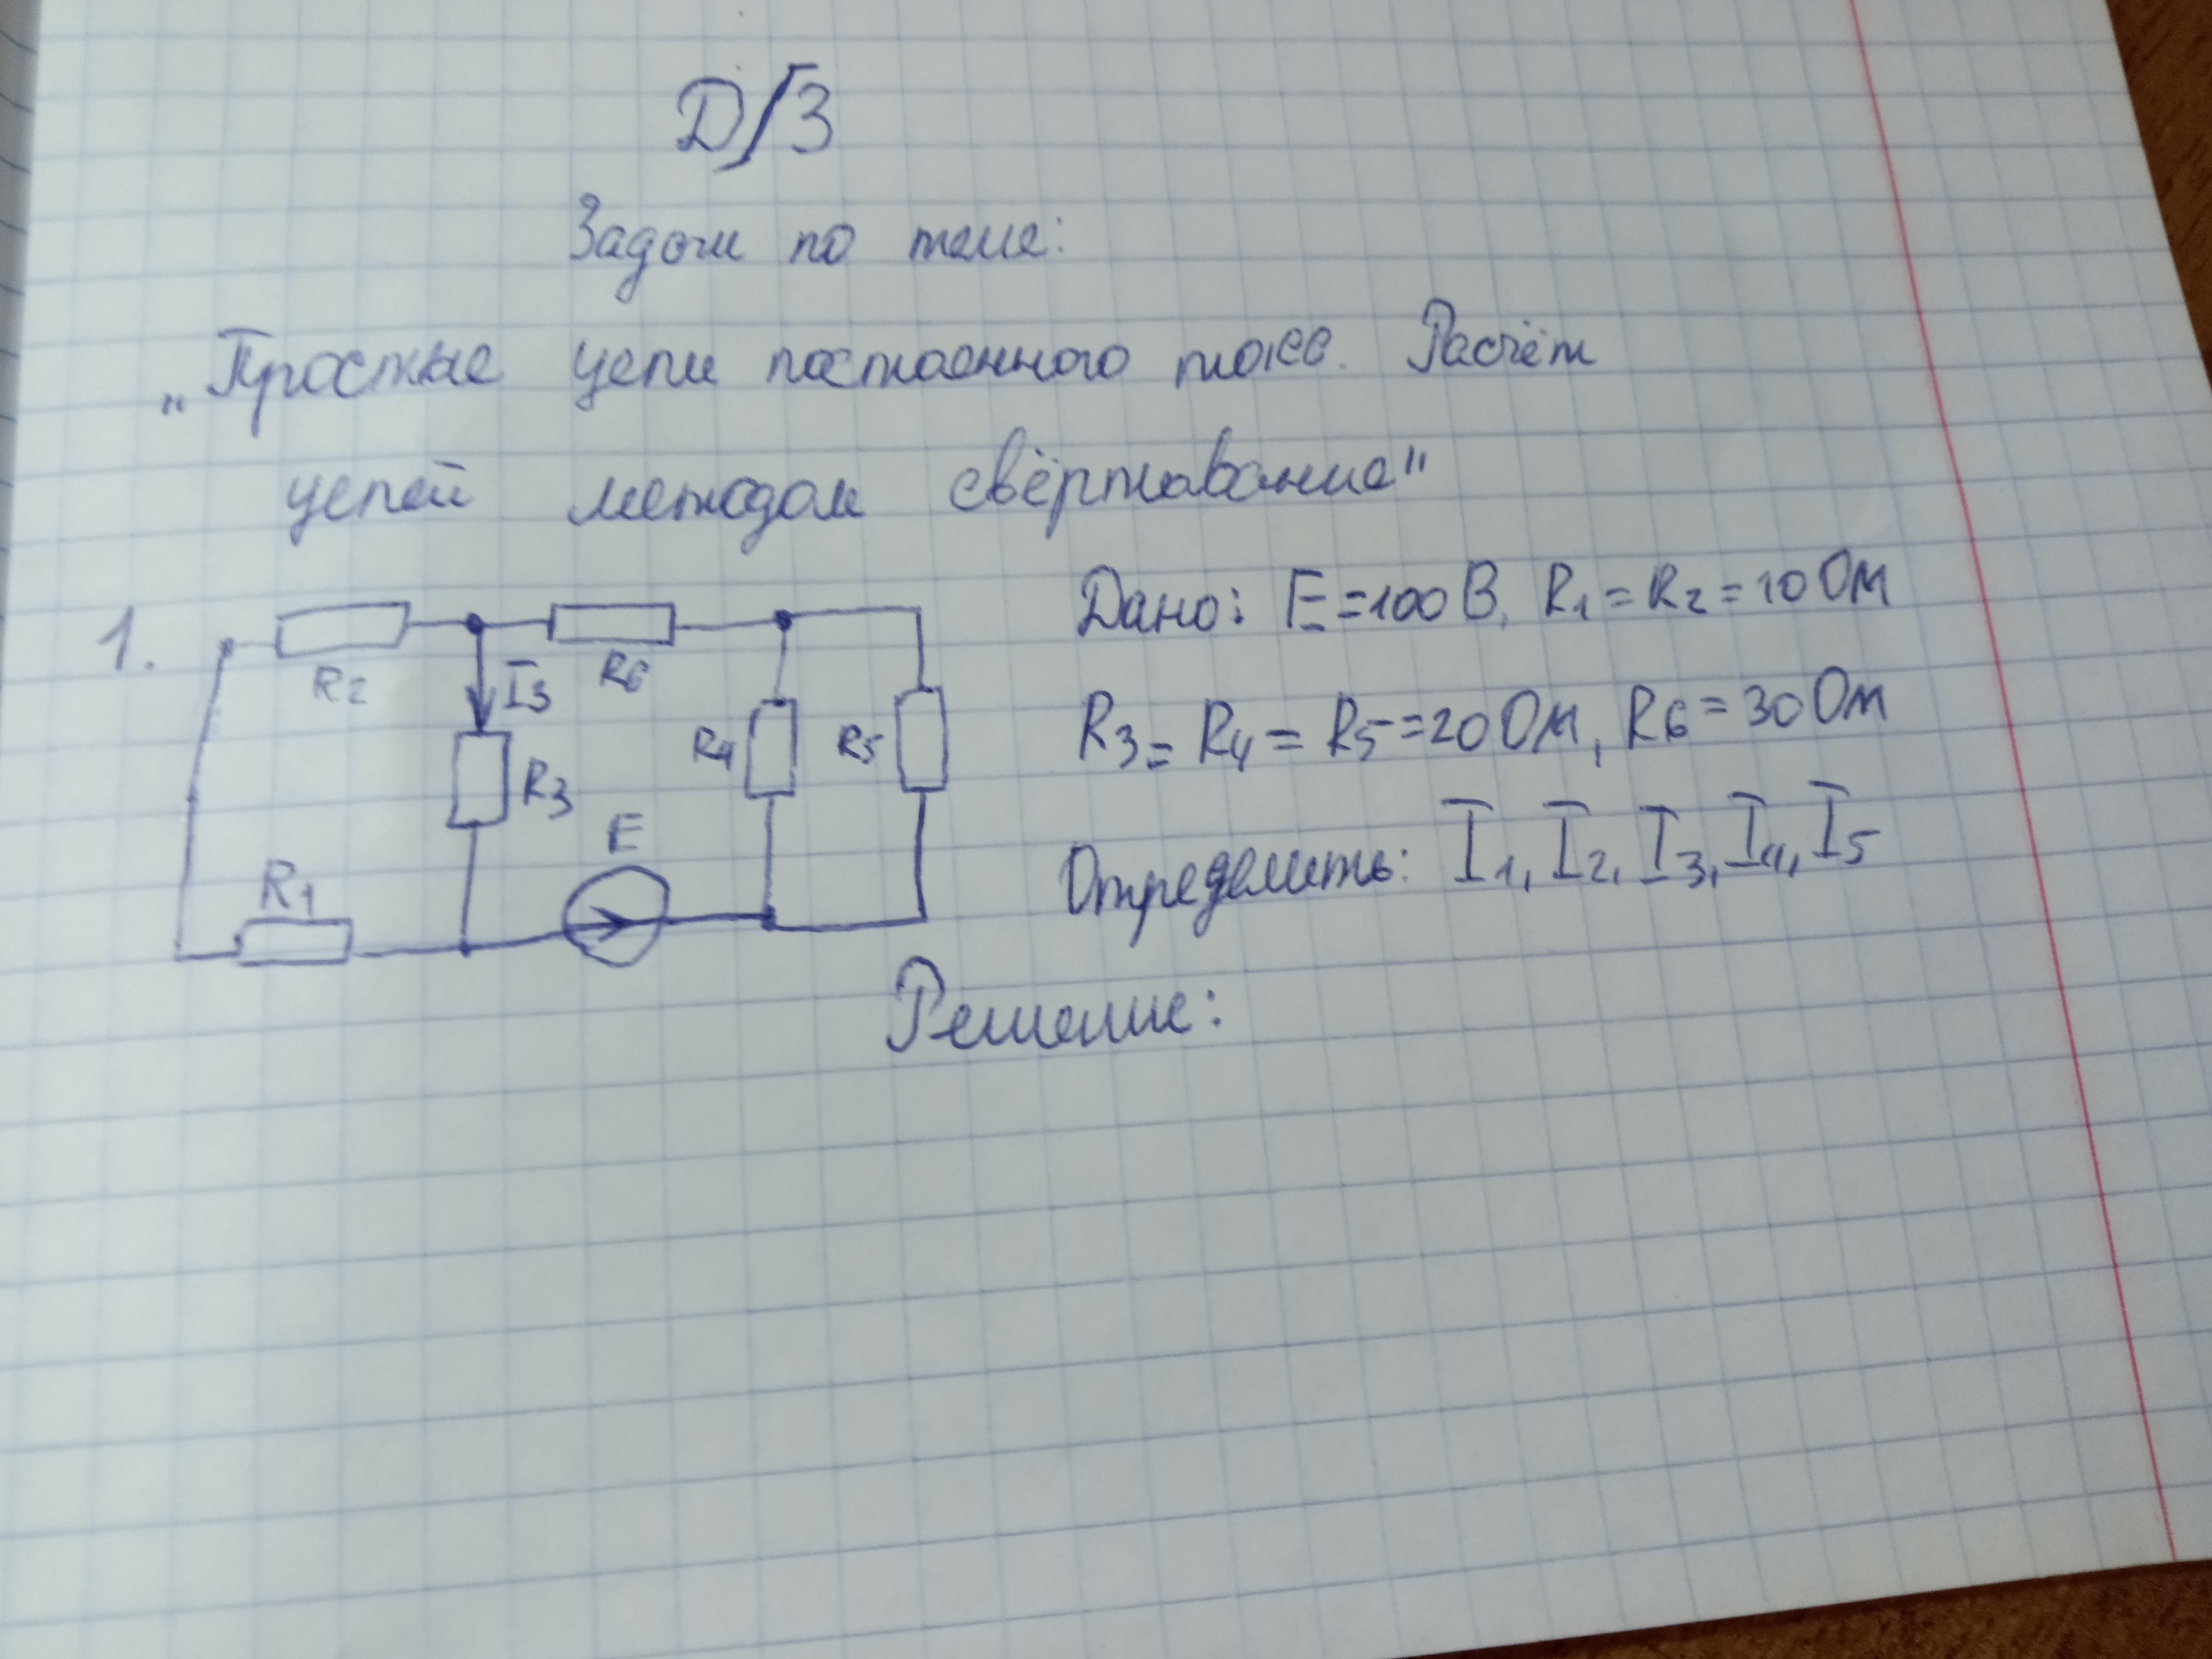 Д/З
Задачи по теме:
„Простые цепи постоянного тока. Расчёт
цепей методом свёртывание"
1.
R2
I3
R6
R3
R4
R5
E
R1
Дано: E=100 В, R1=R2=10 Ом
R3=R4=R5=20 Ом, R6=30 Ом
Определить: I1, I2, I3, I4, I5
Решение: